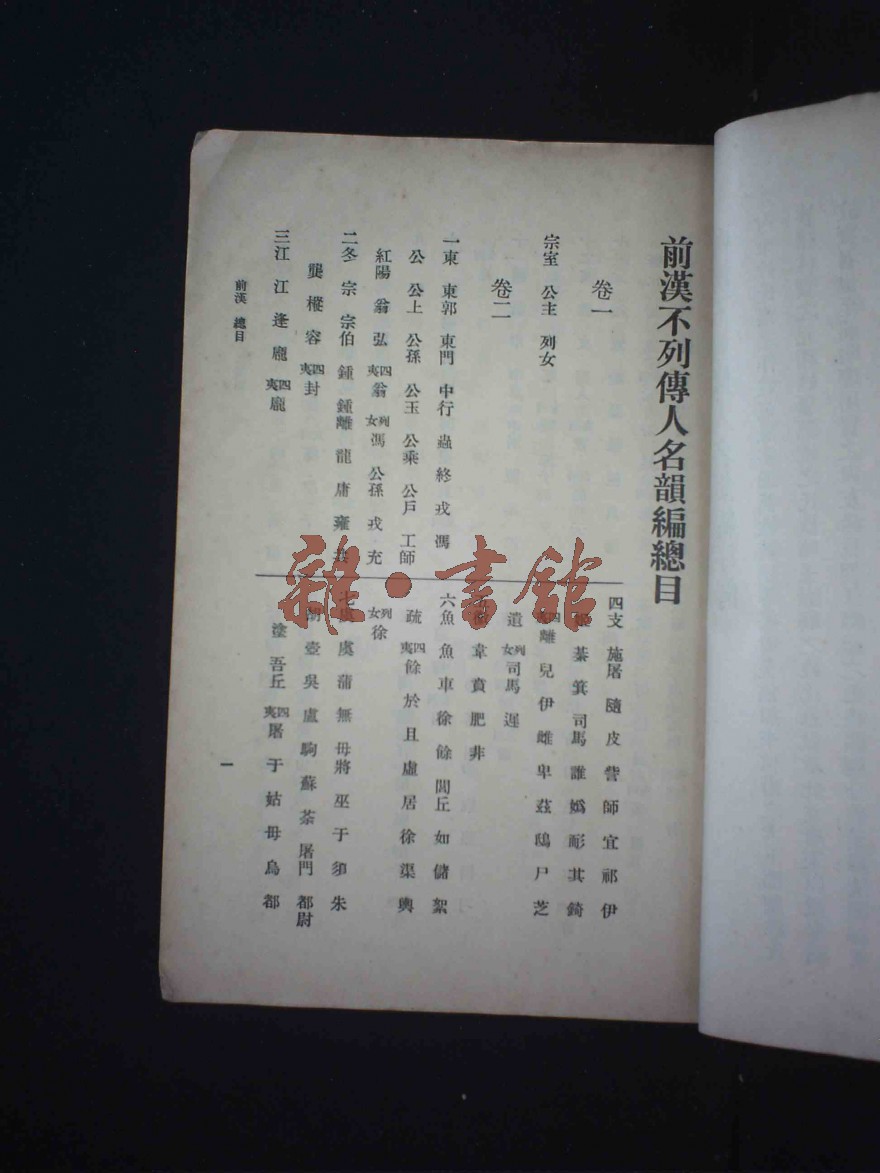 前漢不列傳人名韻編總目
卷一
宗室 公主 列女
卷二
一東 東郭 東門 中行 蟲 終 戎 馮
公 公上 公孫 公玉 公乘 公戶 工師
紅陽 翁 弘 四夷 翁 列女 馮 公孫 戎 充
二冬 宗 宗伯 鍾 鍾離 龍 庸 雍
龔 樅 容 四夷 封
三江 江 逢 龐 四夷 龐
四支 施屠 隨 皮 訾 師 宜 祁 伊
綦 箕 司馬 誰 嬀 彤 其 錡
離 兒 伊 雌 卑 茲 鴟 尸 芝
遺 列女 司馬 遲
韋 賁 肥 非
六魚 魚 車 徐 餘 閭丘 如 儲 絮
疏 四夷 餘 於 且 盧 居 徐 渠 輿
列女 徐
虞 蒲 無 毋將 巫 于 須 朱
壺 吳 盧 駒 蘇 荼 屠門 都尉
塗 吾丘 四夷 屠 于 姑 毋 烏 都
前漢 總目
一
雜·書館